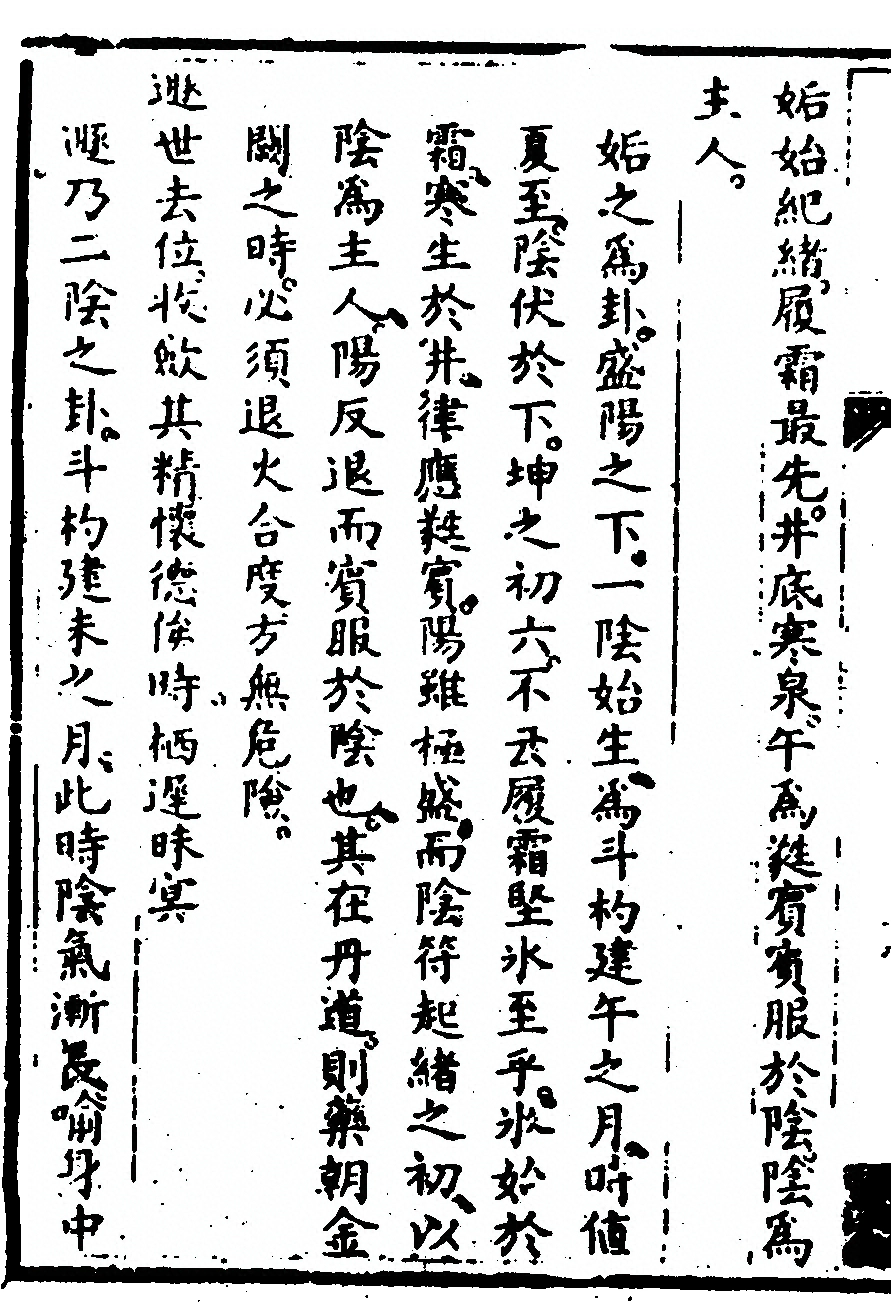 姤始紀緒。履霜最先。井底寒泉。午爲蕤賓。賓服於陰。陰爲
主人。
姤之爲卦。盛陽之下。一陰始生。爲斗杓建午之月。时值
夏至。陰伏於下。坤之初六。不云履霜堅氷至乎。氷始於
霜。寒生於井。律應蕤賓。陽雖極盛。而陰符起緒之初。以
陰爲主人。陽反退而賓服於陰也。其在丹道。則藥朝金
闕之時。必須退火合度。方無危險。
遯世去位。收歛其精。懷德俟時。栖遲昧冥
遯乃二陰之卦。斗杓建未之月。此時陰氣漸長。喻身中